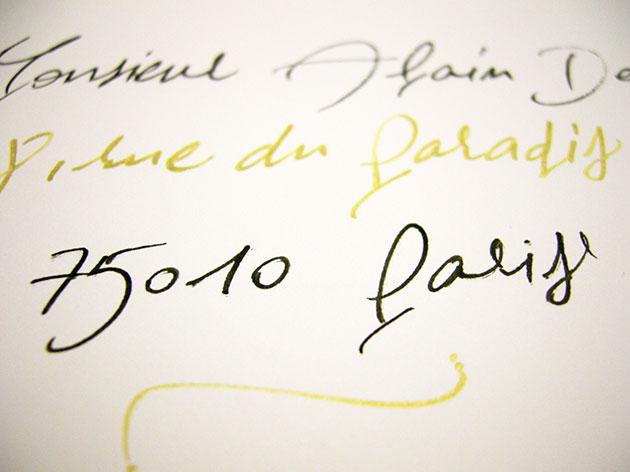 Monsieur Alain De
8, rue du Paradis
75010 Paris